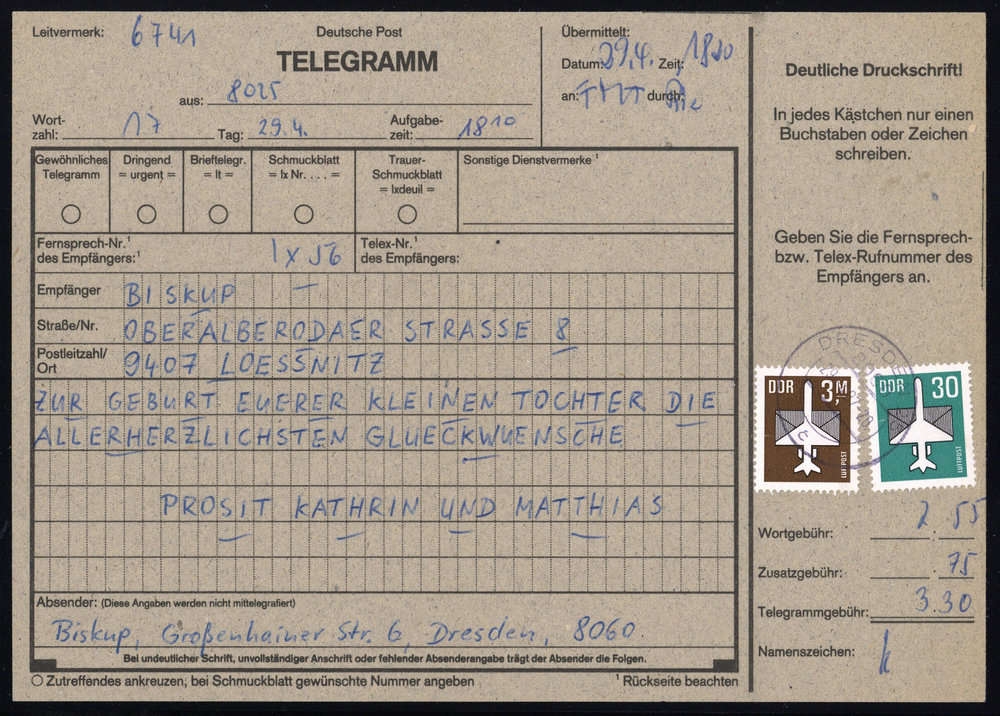 Leitvermerk: 6741
Deutsche Post
TELEGRAMM
aus: 8025
Wort-
zahl: 17 Tag: 29.4. Aufgabe-
zeit: 18 10
Übermittelt:
Datum: 29.4. Zeit: 1820
an: durch:
Gewöhnliches
Telegramm
Dringend
= urgent =
Brieftelegr.
= lt =
Schmuckblatt
= lx Nr. . . . . =
Trauer-
Schmuckblatt
= lxdeuil =
Sonstige Dienstvermerke ¹
Fernsprech-Nr.¹
des Empfängers: lx 56
Telex-Nr.¹
des Empfängers:
Empfänger BISKUP
Straße/Nr. OBERALBERODAER STRASSE 8
Postleitzahl/
Ort 9407 LOESSNITZ
ZUR GEBURT EUERER KLEINEN TOCHTER DIE
ALLERHERZLICHSTEN GLUECKWUENSCHE
PROSIT KATHRIN UND MATTHIAS
Absender: (Diese Angaben werden nicht mittelegrafiert)
Biskup, Großenhainer Str. 6, Dresden, 8060.
Bei undeutlicher Schrift, unvollständiger Anschrift oder fehlender Absenderangabe trägt der Absender die Folgen.
Zutreffendes ankreuzen; bei Schmuckblatt gewünschte Nummer angeben
¹ Rückseite beachten
Deutliche Druckschrift!
In jedes Kästchen nur einen
Buchstaben oder Zeichen
schreiben.
Geben Sie die Fernsprech-
bzw. Telex-Rufnummer des
Empfängers an.
DRESDEN
DDR 3,M
LUFTPOST
DDR 30
LUFTPOST
Wortgebühr: 2 . 55
Zusatzgebühr: . 75
Telegrammgebühr: 3.30
Namenszeichen: